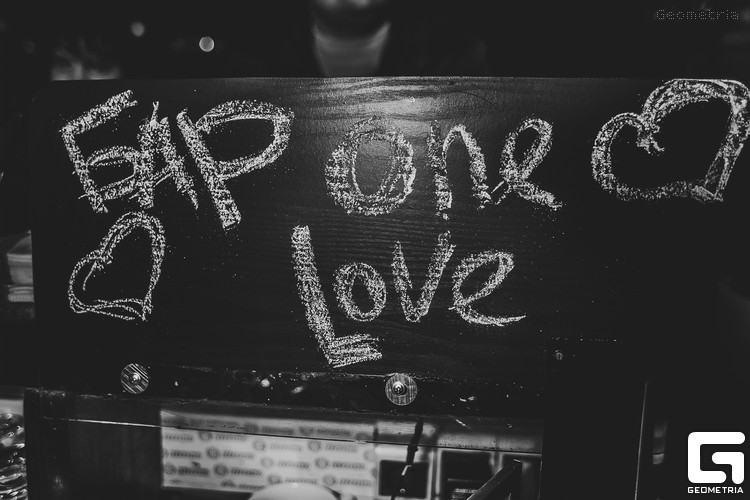 Geometria
БАР one
Love
GEOMETRIA